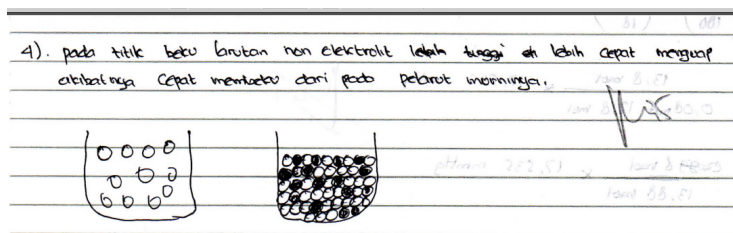 4). pada titik beku larutan non elektrolit lebih cepat menguap
akibatnya cepat membeku dari pada pelarut murninya.